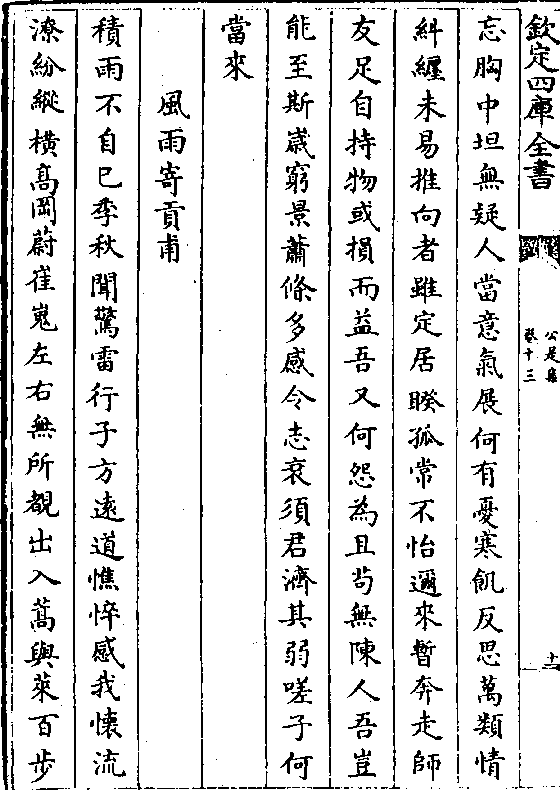 欽定四庫全書
公是集
卷十三
十二
忘胸中坦無疑人當意氣展何有憂寒飢反思萬類情
糾纏未易推向者雖定居睽孤常不怡邇來暫奔走師
友足自持物或損而益吾又何怨為且茍無陳人吾豈
能至斯歲窮景蕭條多感令志衰須君濟其弱嗟子何
當來
風雨寄貢甫
積雨不自已季秋聞驚雷行子方遠道憔悴感我懷流
潦紛縱橫高岡蔚崔嵬左右無所覩出入蒿與萊百步